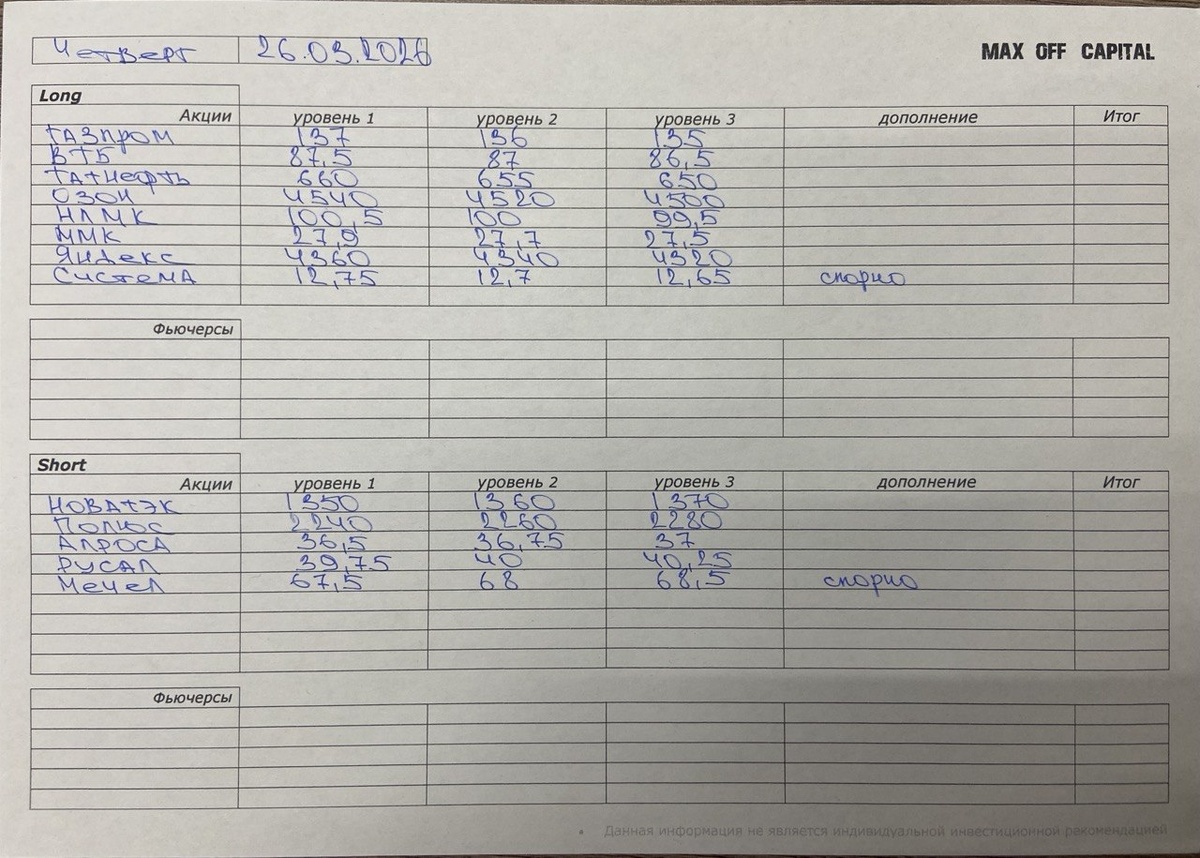 Четверг 26.03.2026 MAX OFF CAPITAL
Long
Акции уровень 1 уровень 2 уровень 3 дополнение Итог
ГАЗПРОМ 137 136 135
ВТБ 87,5 87 86,5
ТАТНЕФТЬ 660 655 650
ОЗОН 4540 4520 4500
НЛМК 100,5 100 99,5
ММК 27,9 27,7 27,5
ЯНДЕКС 4360 4340 4320
СИСТЕМА 12,75 12,7 12,65 спорно
Фьючерсы
Short
Акции уровень 1 уровень 2 уровень 3 дополнение Итог
НОВАТЭК 1350 1360 1370
ПОЛЮС 2240 2260 2280
АЛРОСА 36,5 36,75 37
РУСАЛ 39,75 40 40,25
Мечел 67,5 68 68,5 спорно
Фьючерсы
• Данная информация не является индивидуальной инвестиционной рекомендацией